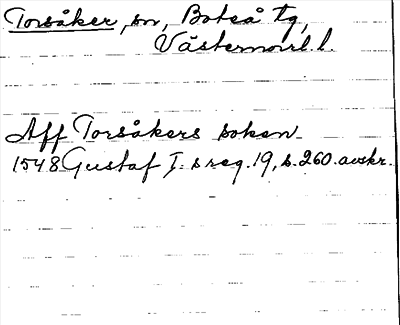 Torsåker, sn, Boteå tg,
Västernorrl. l.
Aff Torsåkers soken
1548 Gustaf I:s reg. 19, s. 260. avskr.